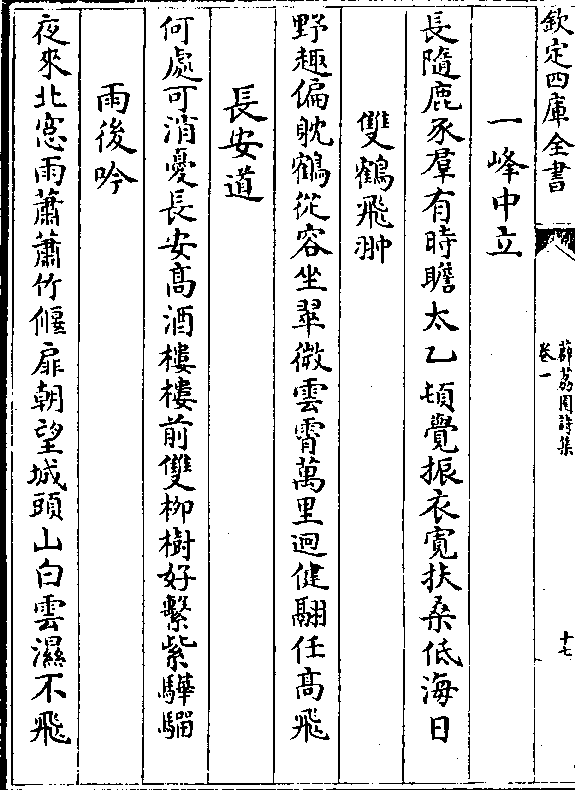 欽定四庫全書
薜荔園詩集
卷一
十七
一峰中立
長隨鹿豕羣有時瞻太乙頓覺振衣寛扶桑低海日
雙鶴飛翀
野趣偏躭鶴從容坐翠微雲霄萬里逈健翮任髙飛
長安道
何處可消憂長安髙酒樓樓前雙柳樹好繫紫驊騮
雨後吟
夜來北窓雨蕭蕭竹偃扉朝望城頭山白雲濕不飛